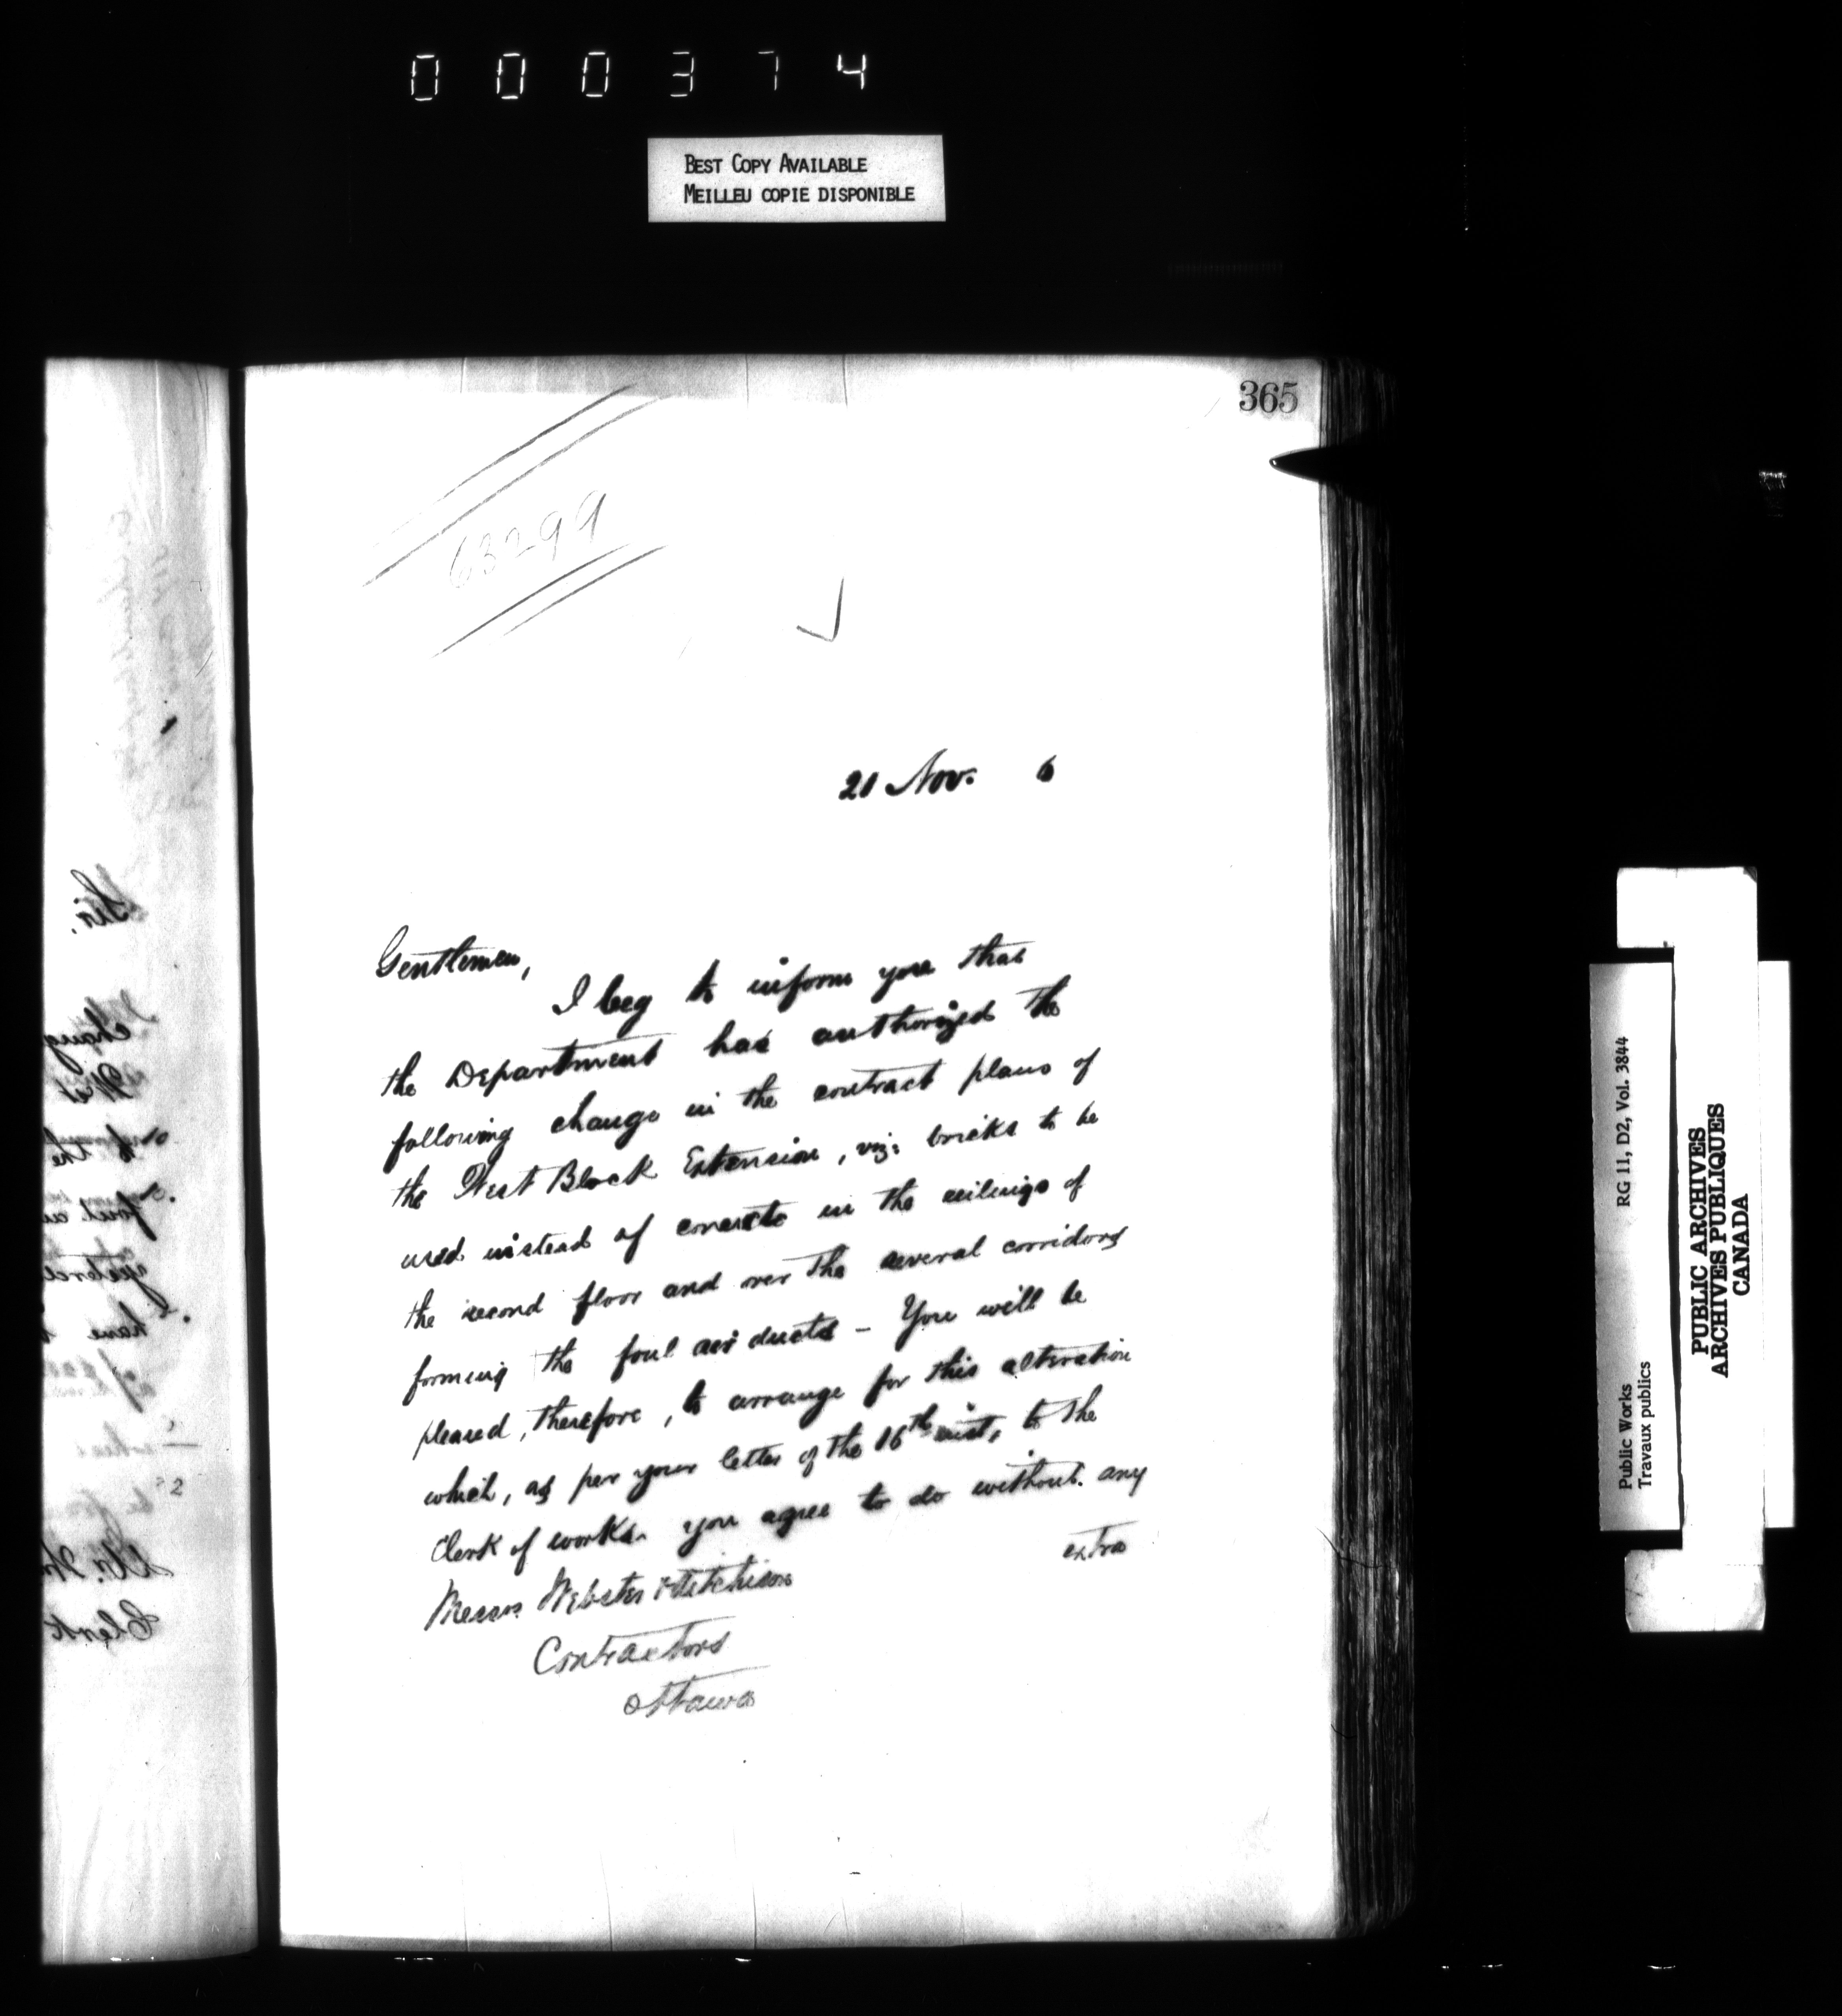 000374
BEST COPY AVAILABLE
MEILLEU COPIE DISPONIBLE
365
63299
21 Nov. 6
Gentlemen,
I beg to inform you that
the Department has authorized the
following change in the contract plans of
the West Block Extension, viz: bricks to be
used instead of concrete in the ceilings of
the second floor and over the several corridors
forming the foul air ducts – You will be
pleased, therefore, to arrange for this alteration
which, as per your letter of the 16th inst, to the
Clerk of works you agree to do without any
extra
Messrs Webster & Hutchison
Contractors
Ottawa
Sir.
chang
West
of the
have
Clerk
Public Works RG 11, D2, Vol. 3844
Travaux publics
PUBLIC ARCHIVES
ARCHIVES PUBLIQUES
CANADA